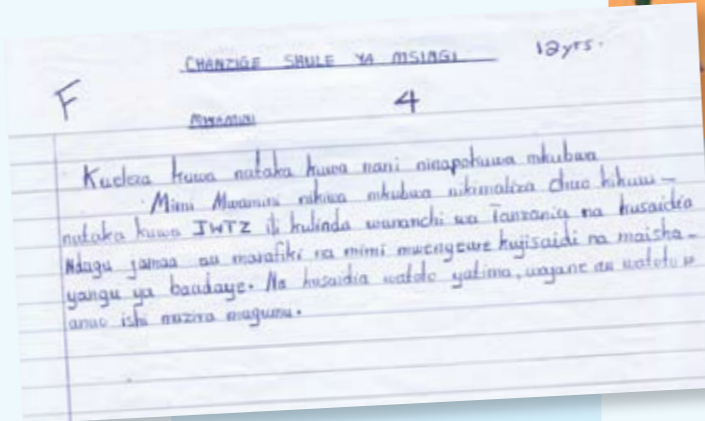 CHANZIGE SHULE YA MSINGI 12yrs.
F 4
Mwamini
Kueleza kuwa nataka kuwa nani ninapokuwa mkubwa
Mimi Mwamini nikiwa mkubwa nikimaliza chuo kikuuu -
nataka kuwa JWTZ ili kulinda wananchi wa Tanzania na kusaidia
Ndagu jamaa au marafiki na mimi mwengewe kujisaidi na maisha -
yangu ya baadaye. Na kusaidia watoto yatima, wajane au watoto w
anao ishi mazira magumu.